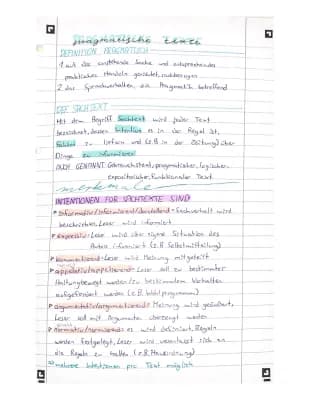 pragmatische texte
DEFINITION PRAGMATISCH
1 auf die anstehende Sache und entsprechendes
praktisches Handeln gerichtet, sachbezogen
2 das Sprachverhalten, die Pragmatik betreffend
DEF SACHTEXT
Mit dem Begriff Sachtext wird jeder Text
bezeichnet, dessen Intention es in der Regel ist,
Fakten zu liefern und (z.B in der Zeitung) über
Dinge zu informieren
AUCH GENANNT: Gebrauchstext, pragmatischer, logischer,
expositorischer, funktionaler Text
merkmale
INTENTIONEN FÜR SACHTEXTE SIND:
informativ/informierend/darstellend = Sachverhalt wird
beschrieben, Leser wird informiert
expressiv = Leser wird über eigene Situation des
Autors informiert (z.B Selbstmitteilung)
kommentierend = Leser wird Meinung mitgeteilt
appellativ/appellierend = Leser soll zu bestimmter
Haltung bewegt werden/zu bestimmtem Verhalten
aufgefordert werden (z.B Wahlprogramm)
argumentativ/argumentierend = Meinung wird geäußert,
Leser soll mit Argumenten überzeugt werden
normativ/normierend = es wird definiert, Regeln
werden festgelegt, Leser wird verpflichtet sich an
die Regeln zu halten (z.B Hausordnung)
mehrere Intentionen pro Text möglich